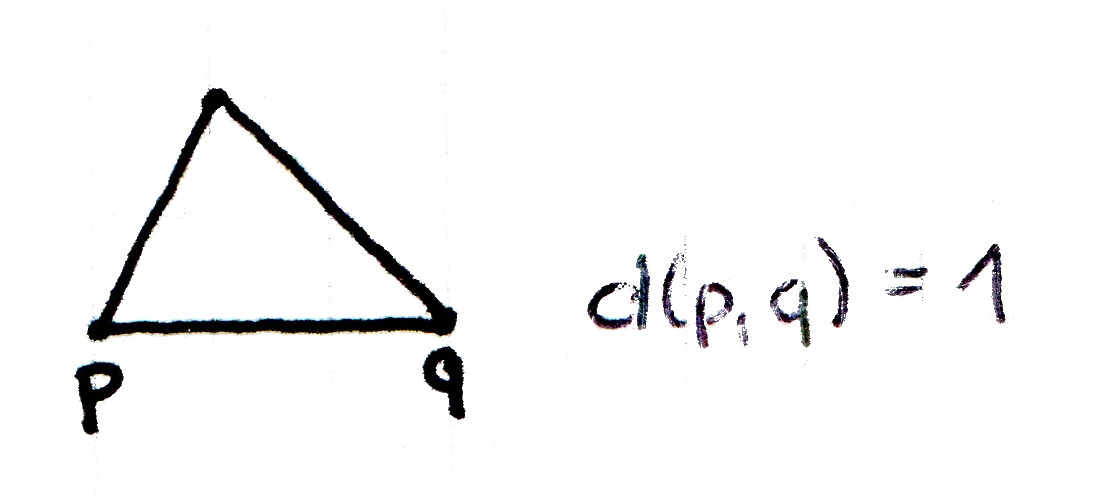 p q
d(p,q) = 1